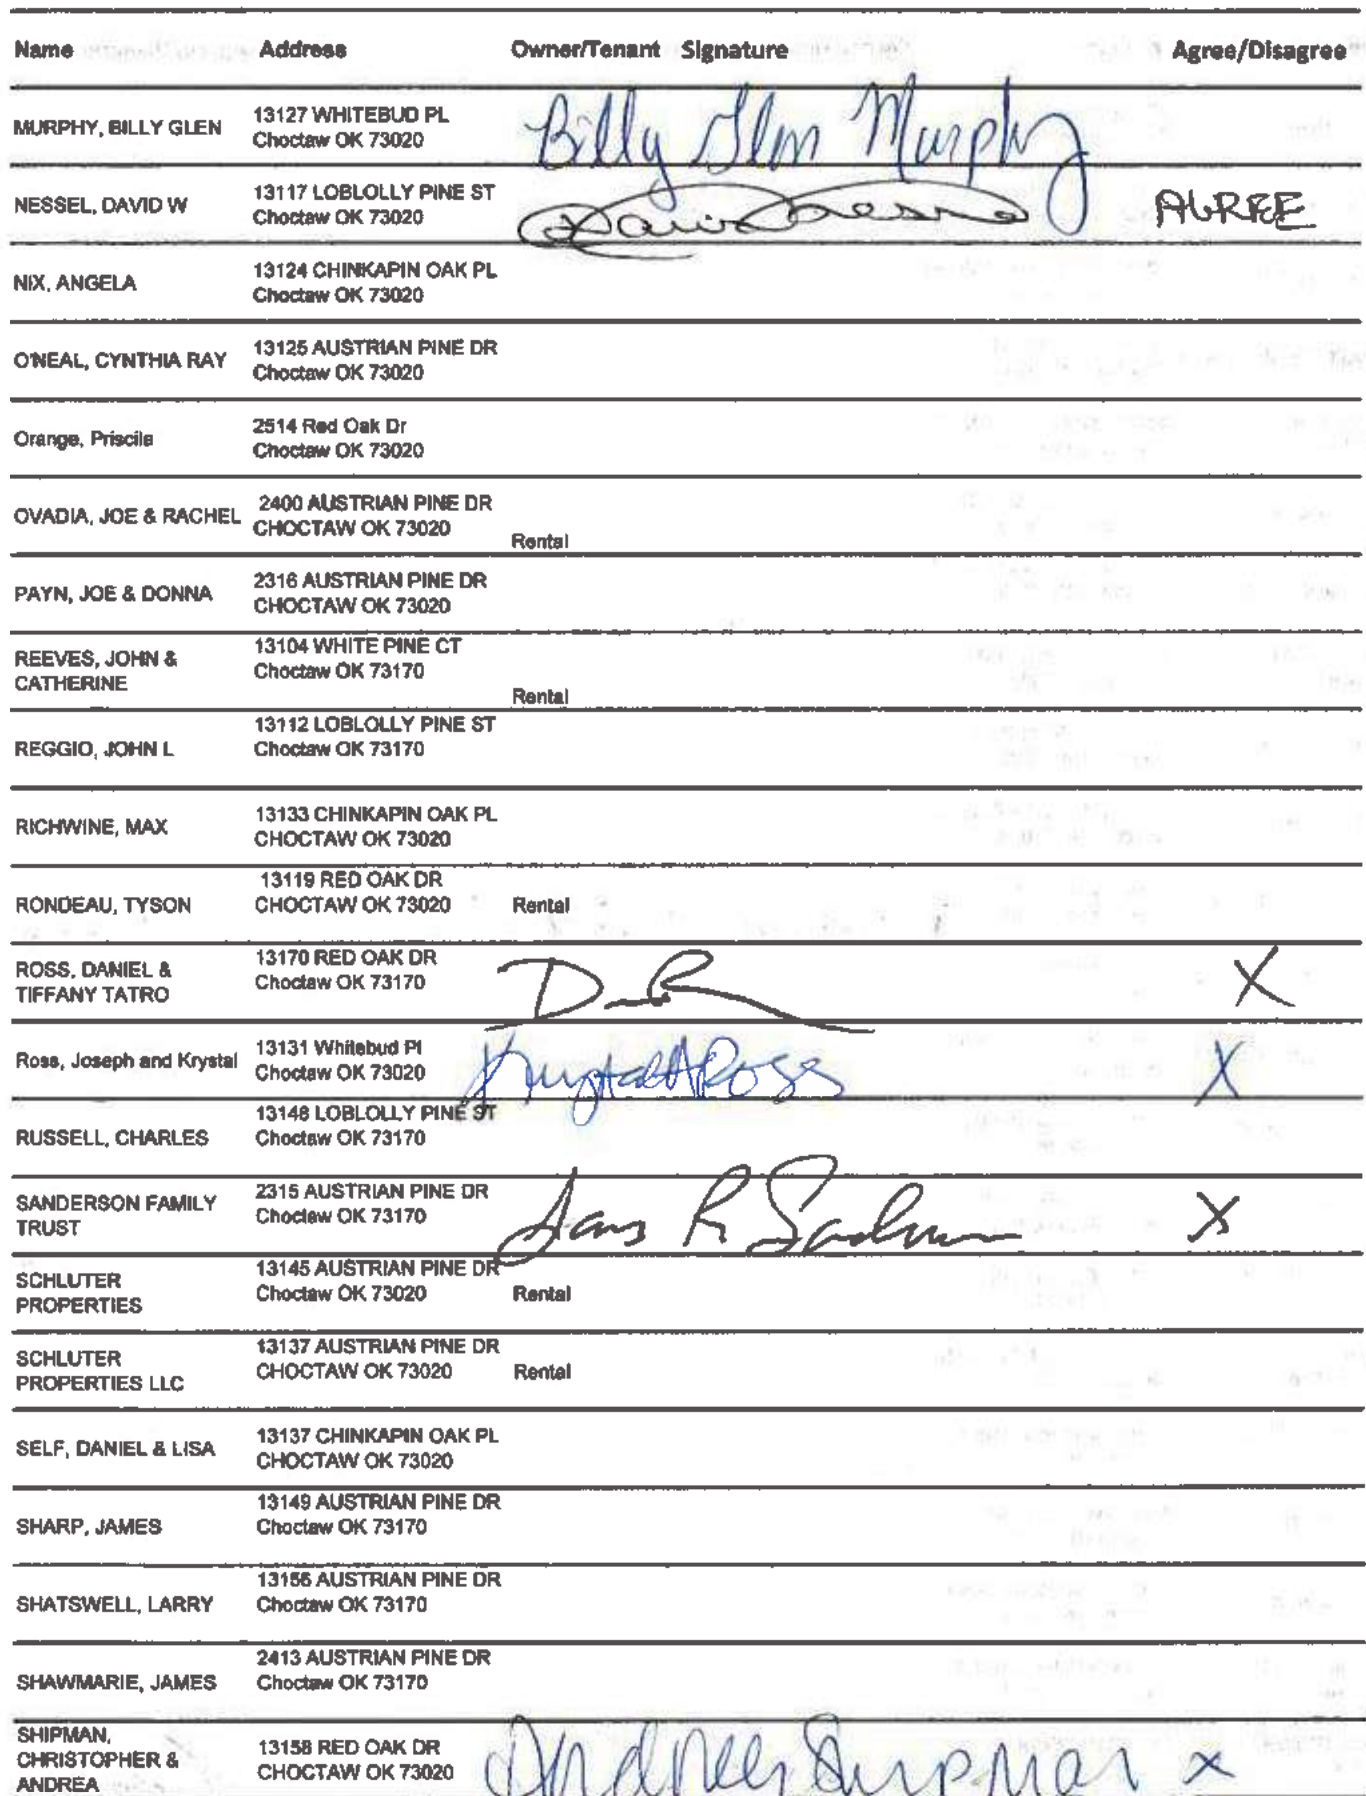 Name Address Owner/Tenant Signature Agree/Disagree
MURPHY, BILLY GLEN 13127 WHITEBUD PL Billy Glen Murphy
Choctaw OK 73020
NESSEL, DAVID W 13117 LOBLOLLY PINE ST David Nessel AGREE
Choctaw OK 73020
NIX, ANGELA 13124 CHINKAPIN OAK PL
Choctaw OK 73020
O'NEAL, CYNTHIA RAY 13125 AUSTRIAN PINE DR
Choctaw OK 73020
Orange, Priscila 2514 Red Oak Dr
Choctaw OK 73020
OVADIA, JOE & RACHEL 2400 AUSTRIAN PINE DR
CHOCTAW OK 73020 Rental
PAYN, JOE & DONNA 2316 AUSTRIAN PINE DR
CHOCTAW OK 73020
REEVES, JOHN & 13104 WHITE PINE CT
CATHERINE Choctaw OK 73170 Rental
REGGIO, JOHN L 13112 LOBLOLLY PINE ST
Choctaw OK 73170
RICHWINE, MAX 13133 CHINKAPIN OAK PL
CHOCTAW OK 73020
RONDEAU, TYSON 13119 RED OAK DR
CHOCTAW OK 73020 Rental
ROSS, DANIEL & 13170 RED OAK DR X
TIFFANY TATRO Choctaw OK 73170
Ross, Joseph and Krystal 13131 Whitebud Pl Krystal A Ross X
Choctaw OK 73020
RUSSELL, CHARLES 13148 LOBLOLLY PINE ST
Choctaw OK 73170
SANDERSON FAMILY 2315 AUSTRIAN PINE DR X
TRUST Choctaw OK 73170
SCHLUTER 13145 AUSTRIAN PINE DR
PROPERTIES Choctaw OK 73020 Rental
SCHLUTER 13137 AUSTRIAN PINE DR
PROPERTIES LLC CHOCTAW OK 73020 Rental
SELF, DANIEL & LISA 13137 CHINKAPIN OAK PL
CHOCTAW OK 73020
SHARP, JAMES 13149 AUSTRIAN PINE DR
Choctaw OK 73170
SHATSWELL, LARRY 13156 AUSTRIAN PINE DR
Choctaw OK 73170
SHAWMARIE, JAMES 2413 AUSTRIAN PINE DR
Choctaw OK 73170
SHIPMAN, 13158 RED OAK DR Andrea Shipman X
CHRISTOPHER & CHOCTAW OK 73020
ANDREA